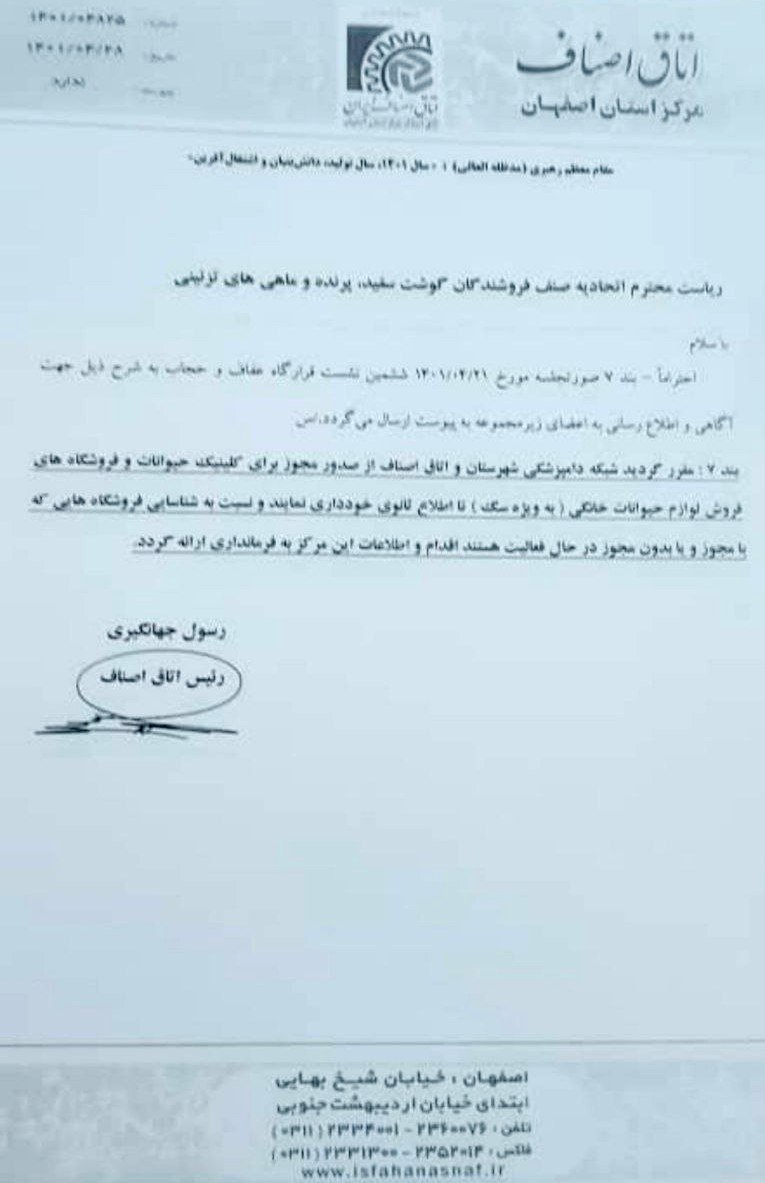 اتاق اصناف
مرکز استان اصفهان
۱۴۰۱/۰۳۸۲۵
۱۴۰۱/۰۴/۲۸
ندارد
مقام معظم رهبری (مدظله العالی) : « سال ۱۴۰۱، سال تولید، دانش‌بنیان و اشتغال آفرین»
ریاست محترم اتحادیه صنف فروشندگان گوشت سفید، پرنده و ماهی های تزئینی
با سلام
احتراماً - بند ۷ صورتجلسه مورخ ۱۴۰۱/۰۴/۲۱ ششمین نشست قرارگاه عفاف و حجاب به شرح ذیل جهت
آگاهی و اطلاع رسانی به اعضای زیرمجموعه به پیوست ارسال می گردد./س
بند ۷ : مقرر گردید شبکه دامپزشکی شهرستان و اتاق اصناف از صدور مجوز برای کلینیک حیوانات و فروشگاه های
فروش لوازم حیوانات خانگی ( به ویژه سگ ) تا اطلاع ثانوی خودداری نمایند و نسبت به شناسایی فروشگاه هایی که
با مجوز و یا بدون مجوز در حال فعالیت هستند اقدام و اطلاعات این مرکز به فرمانداری ارائه گردد.
رسول جهانگیری
رئیس اتاق اصناف
اصفهان ، خیابان شیخ بهایی
ابتدای خیابان اردیبهشت جنوبی
تلفن : ۲۳۶۰۰۷۶ - ۲۳۳۴۰۰۱ (۰۳۱۱)
فاکس : ۲۳۵۲۰۱۴ - ۲۳۳۱۳۰۰ (۰۳۱۱)
www.isfahanasnaf.ir